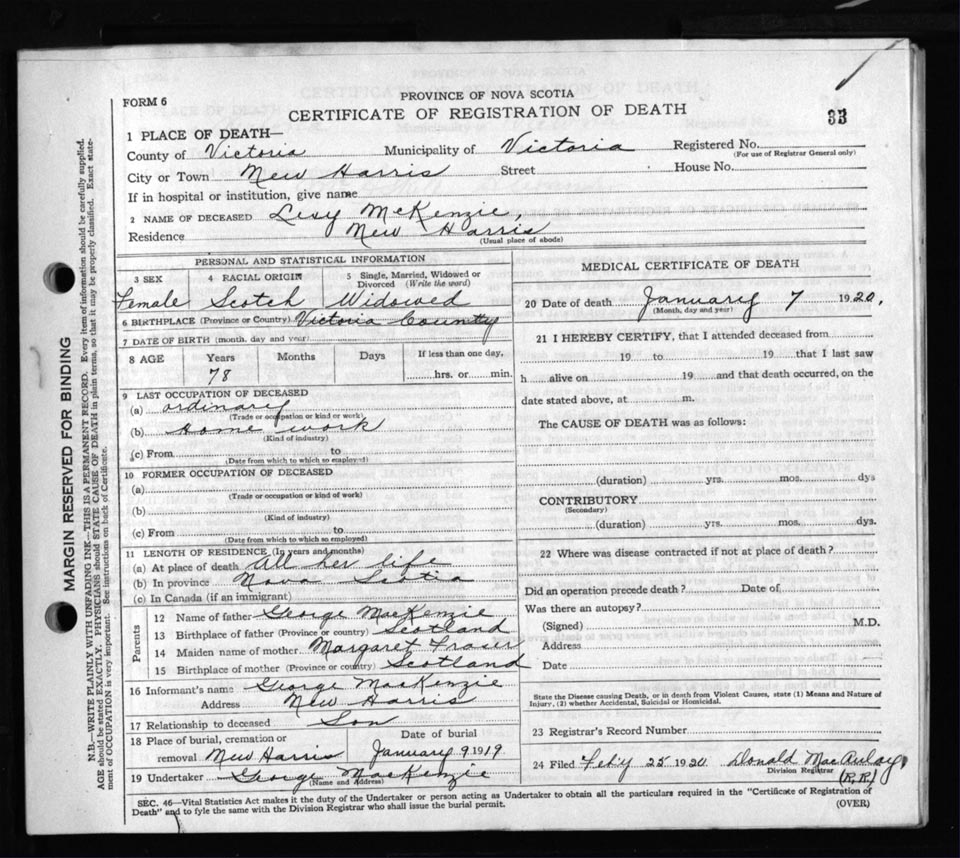 FORM 6
PROVINCE OF NOVA SCOTIA
CERTIFICATE OF REGISTRATION OF DEATH
33
1 PLACE OF DEATH—
County of Victoria Municipality of Victoria Registered No.
(For use of Registrar General only)
City or Town New Harris Street House No.
If in hospital or institution, give name
2 NAME OF DECEASED Lexy McKenzie,
Residence New Harris
(Usual place of abode)
PERSONAL AND STATISTICAL INFORMATION
3 SEX 4 RACIAL ORIGIN 5 Single, Married, Widowed or Divorced (Write the word)
Female Scotch Widowed
6 BIRTHPLACE (Province or Country) Victoria County
7 DATE OF BIRTH (month, day and year)
8 AGE Years Months Days If less than one day,
78 hrs. or min.
9 LAST OCCUPATION OF DECEASED
(a) ordinary
(Trade or occupation or kind of work)
(b) Home work
(Kind of industry)
(c) From to
(Date from which to which so employed)
10 FORMER OCCUPATION OF DECEASED
(a)
(Trade or occupation or kind of work)
(b)
(Kind of industry)
(c) From to
(Date from which to which so employed)
11 LENGTH OF RESIDENCE (In years and months)
(a) At place of death all her life
(b) In province Nova Scotia
(c) In Canada (if an immigrant)
Parents
12 Name of father George MacKenzie
13 Birthplace of father (Province or country) Scotland
14 Maiden name of mother Margaret Fraser
15 Birthplace of mother (Province or country) Scotland
16 Informant's name George MacKenzie
Address New Harris
17 Relationship to deceased Son
18 Place of burial, cremation or removal New Harris Date of burial January 9 1919
19 Undertaker George MacKenzie
(Name and Address)
MEDICAL CERTIFICATE OF DEATH
20 Date of death January 7 1920,
(Month, day and year)
21 I HEREBY CERTIFY, that I attended deceased from
19 to 19 that I last saw
h alive on 19 and that death occurred, on the
date stated above, at m.
The CAUSE OF DEATH was as follows:
(duration) yrs. mos. dys
CONTRIBUTORY
(Secondary)
(duration) yrs. mos. dys.
22 Where was disease contracted if not at place of death?
Did an operation precede death? Date of
Was there an autopsy?
(Signed) M.D.
Address
Date
State the Disease causing Death, or in death from Violent Causes, state (1) Means and Nature of
Injury, (2) whether Accidental, Suicidal or Homicidal.
23 Registrar's Record Number
24 Filed Feby 25 1920 Donald MacAulay
Division Registrar
(R.R.)
SEC. 46—Vital Statistics Act makes it the duty of the Undertaker or person acting as Undertaker to obtain all the particulars required in the "Certificate of Registration of
Death" and to fyle the same with the Division Registrar who shall issue the burial permit.
(OVER)
MARGIN RESERVED FOR BINDING
N.B.—WRITE PLAINLY WITH UNFADING INK—THIS IS A PERMANENT RECORD. Every item of information should be carefully supplied.
AGE should be stated EXACTLY. PHYSICIANS should STATE CAUSE OF DEATH in plain terms, so that it may be properly classified. Exact state-
ment of OCCUPATION is very important. See instructions on back of Certificate.